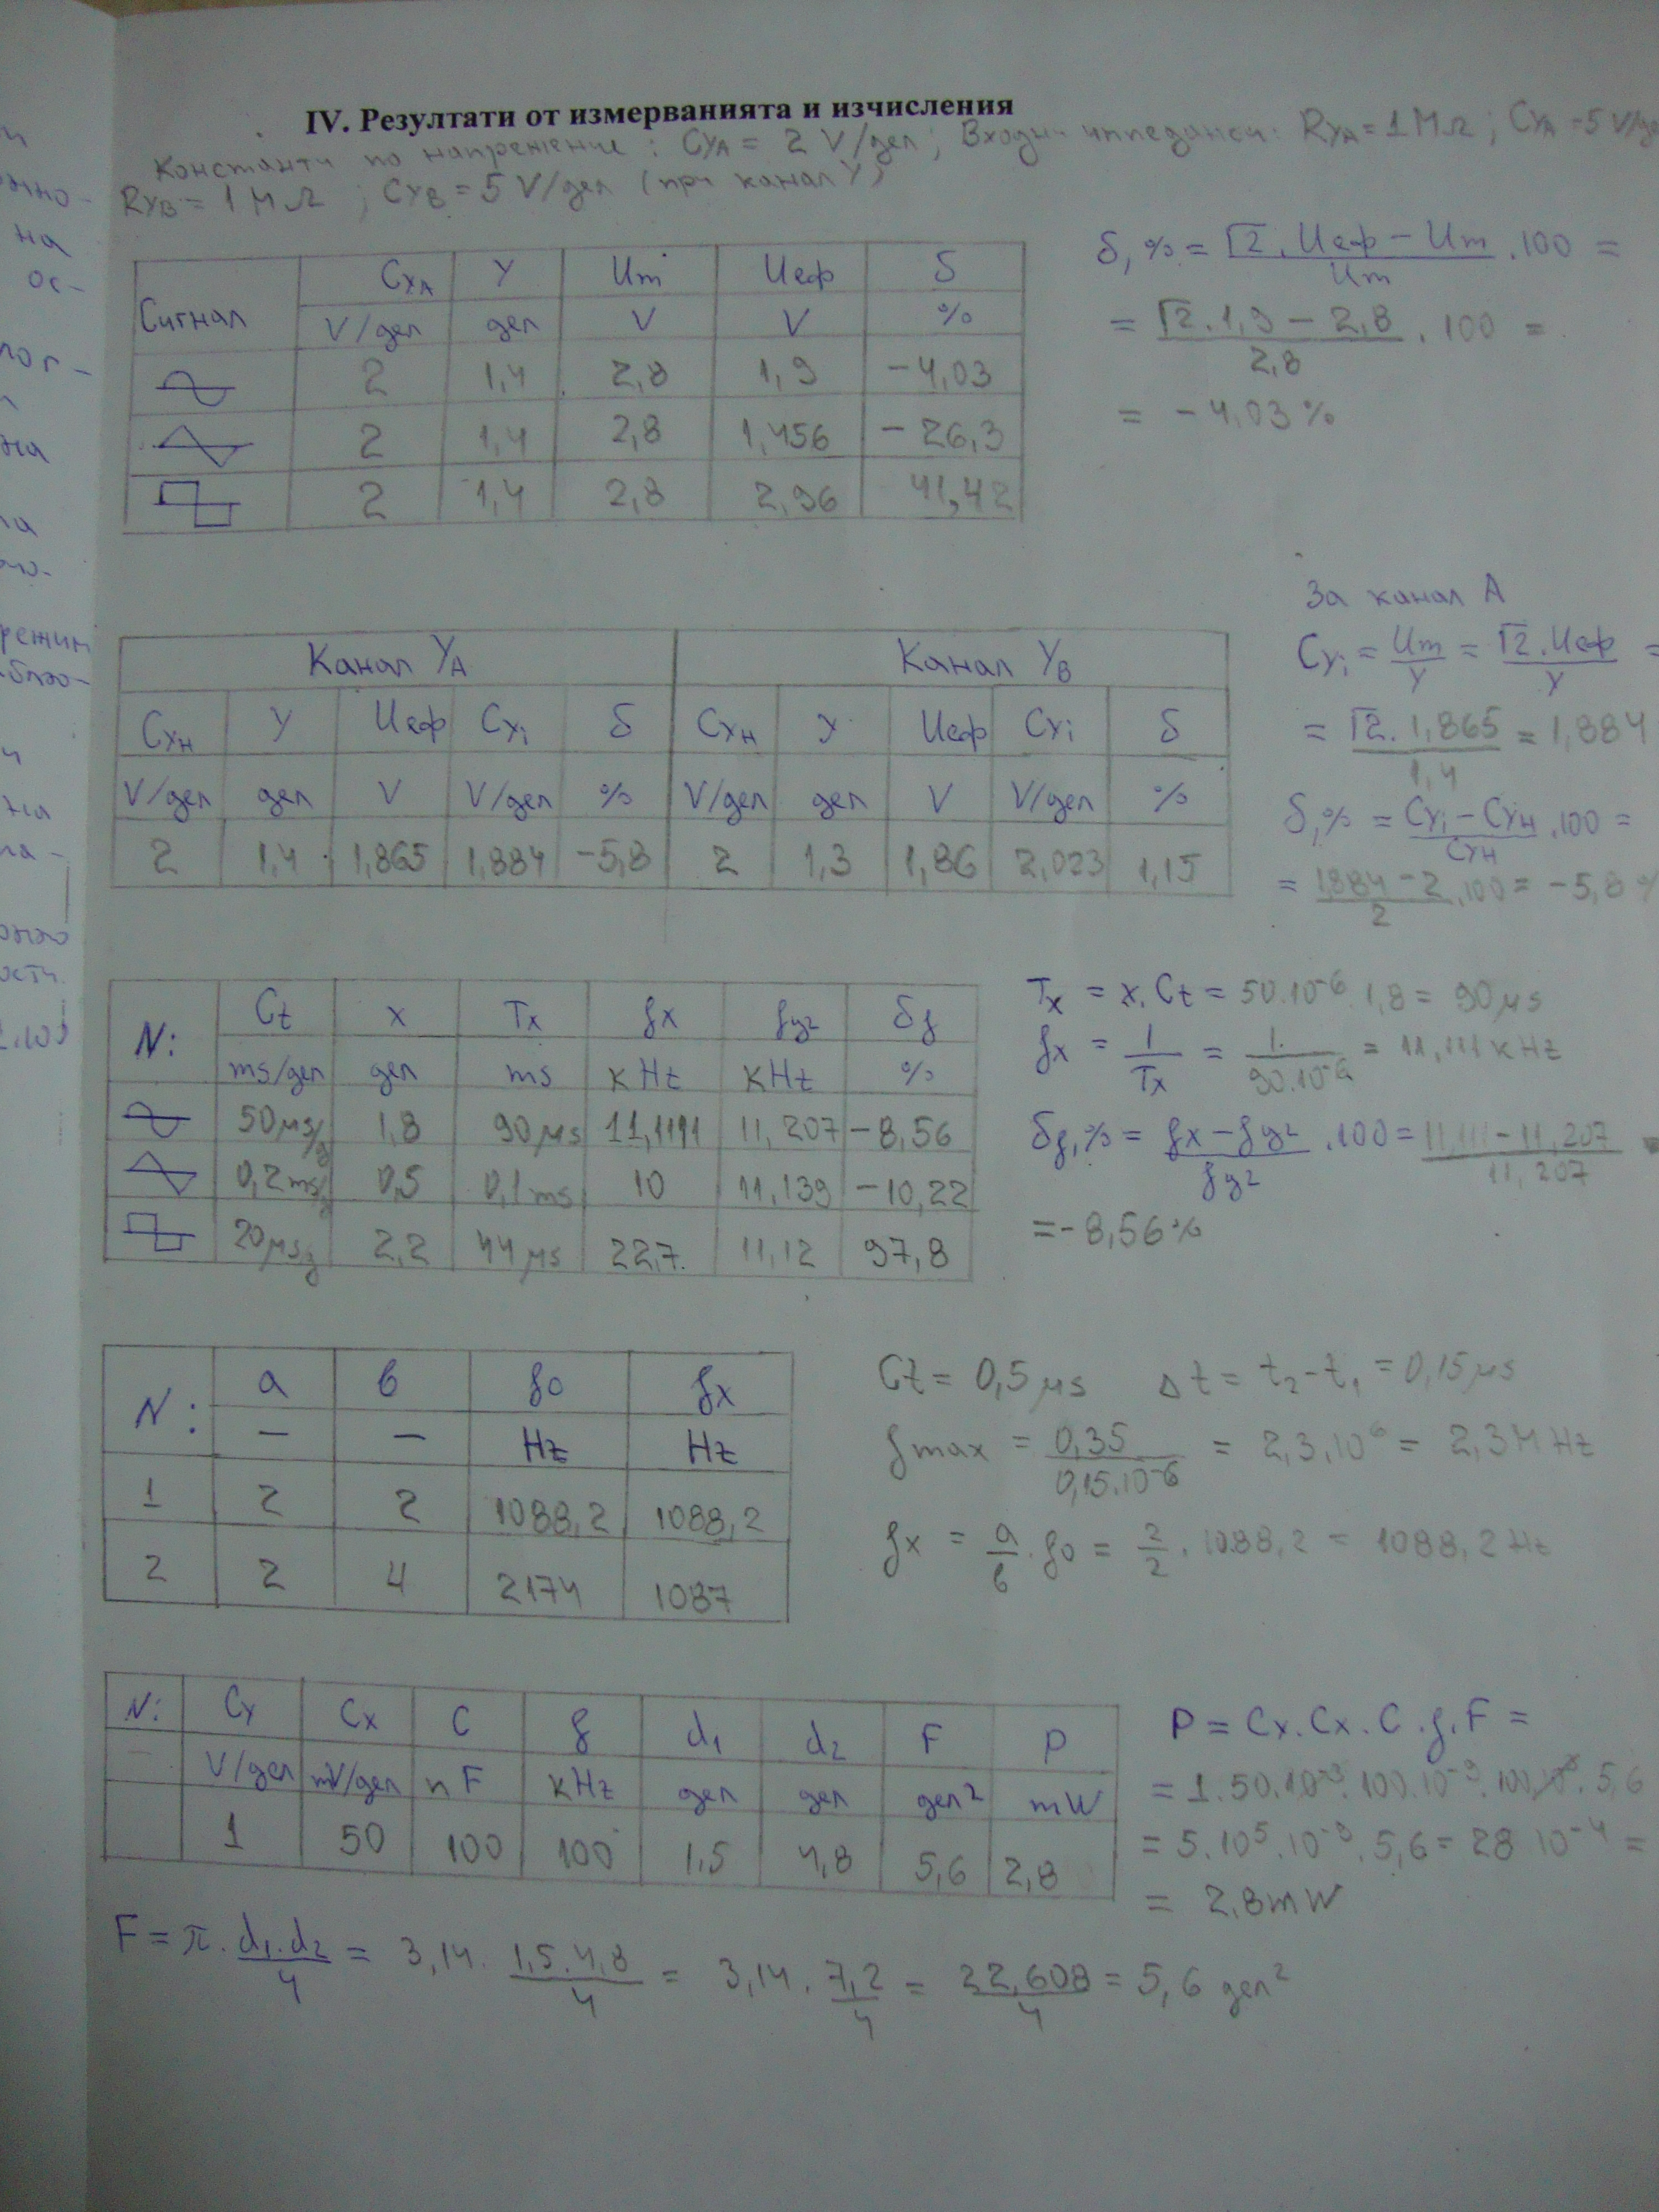 IV. Резултати от измерванията и изчисления
Константи по напрежение: CyA = 2 V/дел; Входни импеданси: RyA = 1MΩ; CyA = 5 V/де
RyB = 1 MΩ ; CyB = 5 V/дел (при канал Y)
Сигнал CxA Y Um Uеф δ
V/дел дел V V %
2 1,4 2,8 1,9 -4,03
2 1,4 2,8 1,456 -26,3
2 1,4 2,8 2,96 41,42
δ,% = √2.Uеф - Um / Um .100 =
= √2.1,9 - 2,8 / 2,8 .100 =
= -4,03%
Канал YA Канал YB
CyH Y Uеф Cyi δ CyH Y Uеф Cyi δ
V/дел дел V V/дел % V/дел дел V V/дел %
2 1,4 1,865 1,884 -5,8 2 1,3 1,86 2,023 1,15
За канал A
Cyi = Um / Y = √2.Uеф / Y =
= √2.1,865 / 1,4 = 1,884
δ,% = Cyi - CyH / CyH .100 =
= 1,884 - 2 / 2 .100 = -5,8 %
N: Ct x Tx fx fy2 δf
ms/дел дел ms кHz кHz %
50μs/g 1,8 90μs 11,1111 11,207 -8,56
0,2ms/g 0,5 0,1ms 10 11,139 -10,22
20μs/g 2,2 44μs 22,7 11,12 97,8
Tx = x.Ct = 50.10-6.1,8 = 90μs
fx = 1 / Tx = 1 / 90.10-6 = 11,111 кHz
δf,% = fx - fy2 / fy2 .100 = 11,111 - 11,207 / 11,207
= -8,56%
N: a в f0 fx
— — Hz Hz
1 2 2 1088,2 1088,2
2 2 4 2174 1087
Ct = 0,5μs Δt = t2-t1 = 0,15μs
fmax = 0,35 / 0,15.10-6 = 2,3.10⁶ = 2,3MHz
fx = a / в .f0 = 2 / 2 .1088,2 = 1088,2 Hz
N: Cy Cx C f d1 d2 F P
V/дел mV/дел nF кHz дел дел дел² mW
1 50 100 100 1,5 4,8 5,6 2,8
P = Cx.Cx.C.f.F =
= 1.50.10-3.100.10-9.100.10³.5,6
= 5.10⁵.10-9.5,6 = 28 10-4 =
= 2,8mW
F = π. d1.d2 / 4 = 3,14. 1,5.4,8 / 4 = 3,14. 7,2 / 4 = 22,608 / 4 = 5,6 дел²